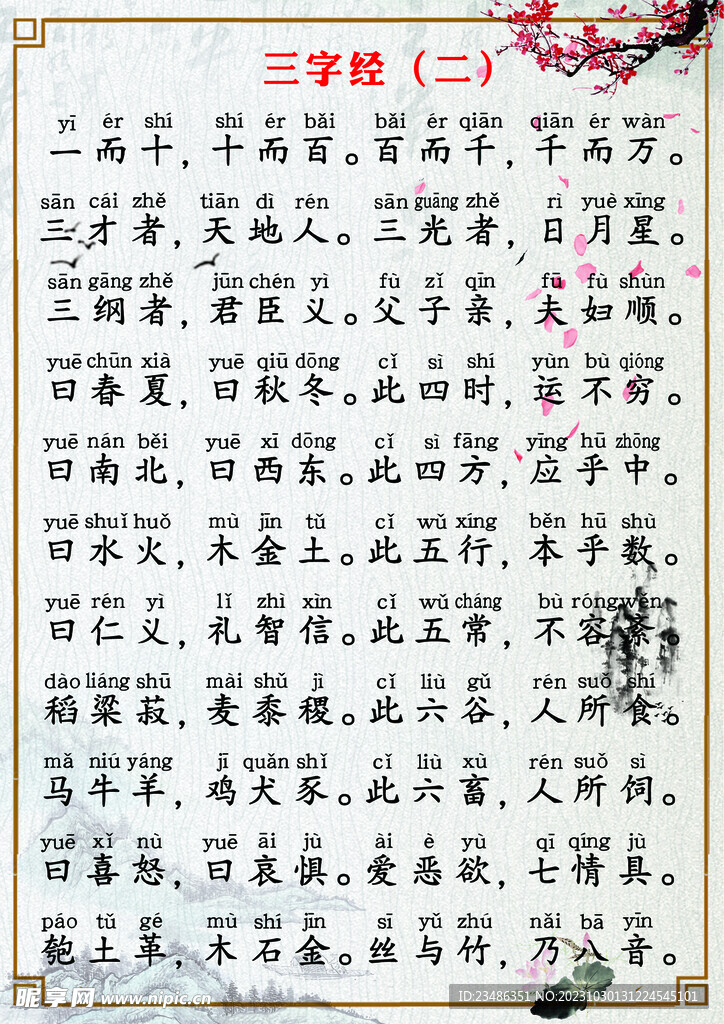 三字经（二）
yī ér shí shí ér bǎi bǎi ér qiān qiān ér wàn
一而十，十而百。百而千，千而万。
sān cái zhě tiān dì rén sān guāng zhě rì yuè xīng
三才者，天地人。三光者，日月星。
sān gāng zhě jūn chén yì fù zǐ qīn fū fù shùn
三纲者，君臣义。父子亲，夫妇顺。
yuē chūn xià yuē qiū dōng cǐ sì shí yùn bù qióng
曰春夏，曰秋冬。此四时，运不穷。
yuē nán běi yuē xī dōng cǐ sì fāng yīng hū zhōng
曰南北，曰西东。此四方，应乎中。
yuē shuǐ huǒ mù jīn tǔ cǐ wǔ xíng běn hū shù
曰水火，木金土。此五行，本乎数。
yuē rén yì lǐ zhì xìn cǐ wǔ cháng bù róng wěn
曰仁义，礼智信。此五常，不容紊。
dào liáng shū mài shǔ jì cǐ liù gǔ rén suǒ shí
稻粱菽，麦黍稷。此六谷，人所食。
mǎ niú yáng jī quǎn shǐ cǐ liù xù rén suǒ sì
马牛羊，鸡犬豕。此六畜，人所饲。
yuē xǐ nù yuē āi jù ài è yù qī qíng jù
曰喜怒，曰哀惧。爱恶欲，七情具。
páo tǔ gé mù shí jīn sī yǔ zhú nǎi bā yīn
匏土革，木石金。丝与竹，乃八音。
昵享网 www.nipic.cn
ID:23486351 NO:20231030131224545101